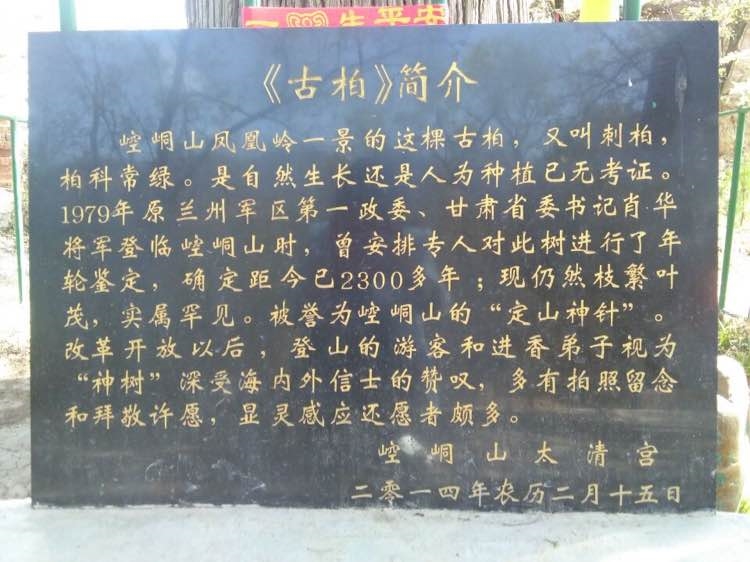 一生平安
《古柏》简介
崆峒山凤凰岭一景的这棵古柏，又叫刺柏，
柏科常绿。是自然生长还是人为种植已无考证。
1979年原兰州军区第一政委、甘肃省委书记肖华
将军登临崆峒山时，曾安排专人对此树进行了年
轮鉴定，确定距今已2300多年；现仍然枝繁叶
茂，实属罕见。被誉为崆峒山的“定山神针”。
改革开放以后，登山的游客和进香弟子视为
“神树”深受海内外信士的赞叹，多有拍照留念
和拜敬许愿，显灵感应还愿者颇多。
崆峒山太清宫
二零一四年农历二月十五日